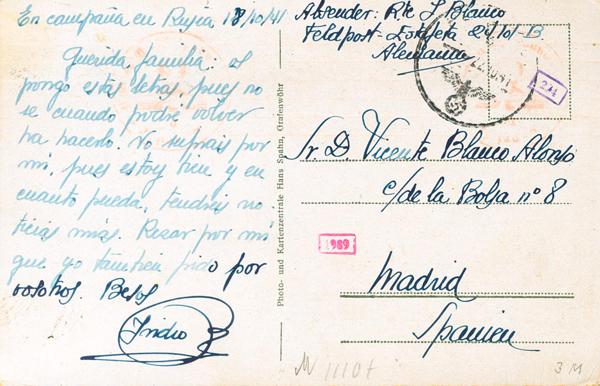 En campaña en Rusia 18/10/41
Querida familia: os
pongo estas letras, pues no
se cuando podré volver
ha hacerlo. No sufrais por
mi, pues estoy bien y en
cuanto pueda, tendreis no
ticias mias. Rezar por mi
que yo tambien pido por
vosotros. Besos
Isidro
Absender: Rte I Blanco
Feldpost-Estafeta 24101-B
Alemania
Sr. D. Vicente Blanco Alonso
c/ de la Bolsa nº 8
Madrid
Spanien
1989
Photo- und Kartenzentrale Hans Spahn, Grafenwöhr
3 M